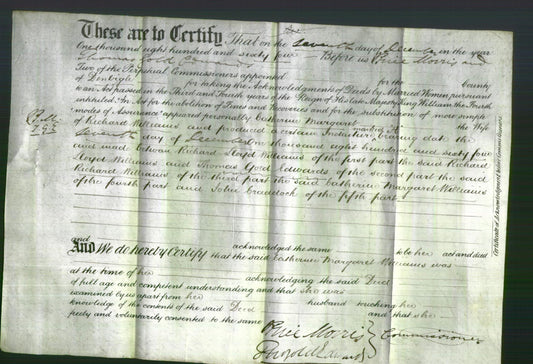 These are to Certify, That on the seventh day of December in the year
One thousand eight hundred and sixty four Before us Price Morris and
Thomas Gold Edwards
Two of the Perpetual Commissioners appointed for the County
of Denbigh for taking the Acknowledgments of Deeds by Married Women, pursuant
to an Act passed in the Third and Fourth years of the Reign of His late Majesty King William the Fourth
intituled "An Act for the abolition of Fines and Recoveries and for the substitution of more simple
modes of Assurance" appeared personally Catherine Margaret the Wife
of Richard Williams and produced a certain Indenture marked A bearing date the
seventh day of December one thousand eight hundred and sixty four
and made between Richard Lloyd Williams of the first part the said Richard
Lloyd Williams and Thomas Gold Edwards of the second part the said
Richard Williams of the third part the said Catherine Margaret Williams
of the fourth part and John Craddock of the fifth part
and acknowledged the same to be her act and deed
AND We do hereby Certify that the said Catherine Margaret Williams was
at the time of her acknowledging the said Deed
of full age and competent understanding and that she was
examined by us apart from her husband touching her
knowledge of the contents of the said Deed and that she
freely and voluntarily consented to the same
Price Morris
Commissioners
Thos Gold Edwards
Certificate of Acknowledgment before Commissioners